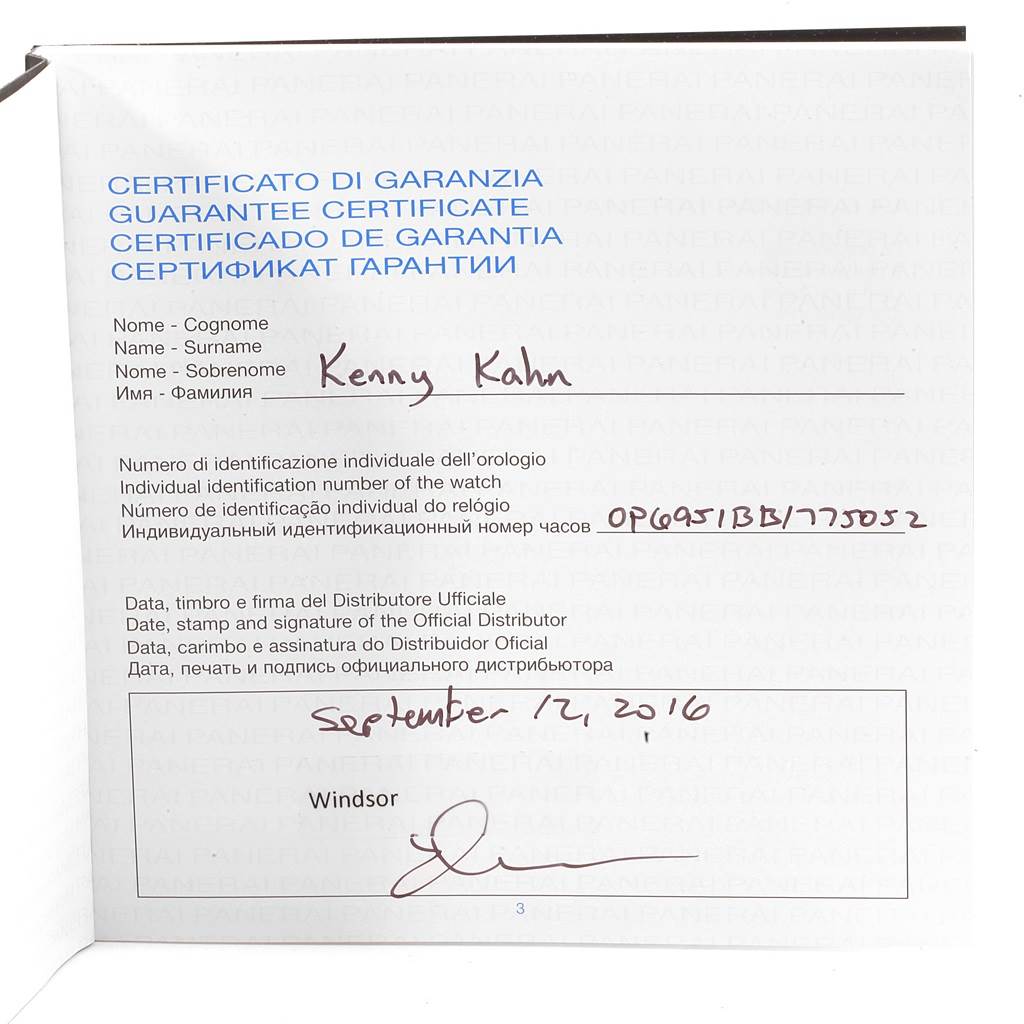 CERTIFICATO DI GARANZIA
GUARANTEE CERTIFICATE
CERTIFICADO DE GARANTIA
СЕРТИФИКАТ ГАРАНТИИ
Nome - Cognome
Name - Surname
Nome - Sobrenome
Имя - Фамилия Kenny Kahn
Numero di identificazione individuale dell'orologio
Individual identification number of the watch
Número de identificação individual do relógio
Индивидуальный идентификационный номер часов OP6951BB1775052
Data, timbro e firma del Distributore Ufficiale
Date, stamp and signature of the Official Distributor
Data, carimbo e assinatura do Distribuidor Oficial
Дата, печать и подпись официального дистрибьютора
September 12, 2016
Windsor
3